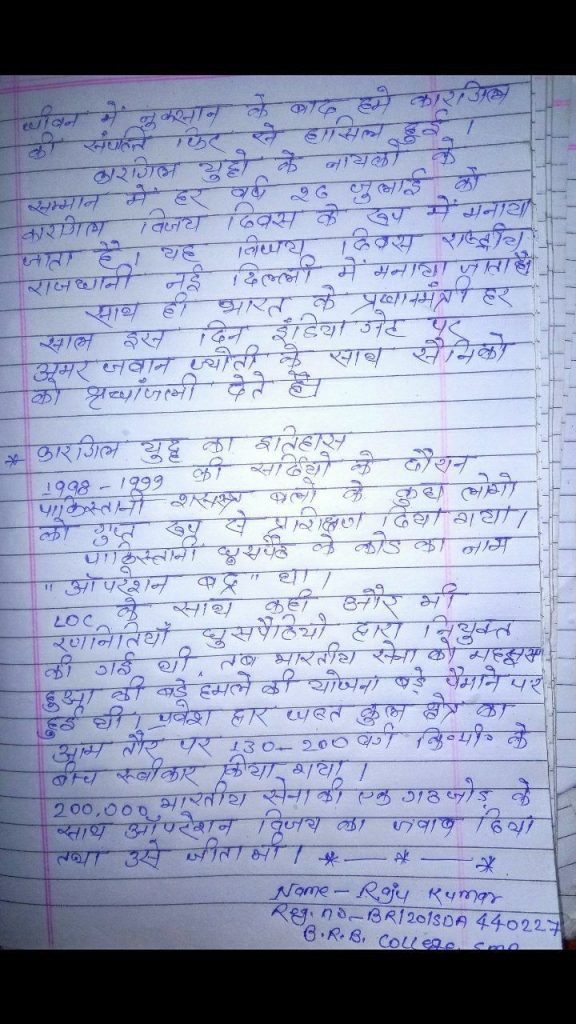 जीवन में नुकसान के बाद हमे कारगिल
की संपत्ति फिर से हासिल हुई।
कारगिल युद्धो के नायकों के
सम्मान में हर वर्ष २६ जुलाई को
कारगिल विजय दिवस के रूप में मनाया
जाता है। यह विजय दिवस राष्ट्रीय
राजधानी नई दिल्ली में मनाया जाता है।
साथ ही भारत के प्रधानमंत्री हर
साल इस दिन इंडिया गेट पर
अमर जवान ज्योती के साथ सैनिको
को श्रृध्धांजली देते हैं।
* कारगिल युद्ध का इतिहास
1998-1999 की सर्दियो के दौरान
पाकिस्तानी सशस्त्र बलो के कुछ लोगो
को गुप्त रूप से प्रशिक्षण दिया गया।
पाकिस्तानी घुसपैठ के कोड का नाम
"ऑपरेशन बद्र" था।
LOC के साथ कही और भी
रणनितियाँ घुसपैठियो द्वारा नियुक्त
की गई थी, तब भारतीय सेना को महसूस
हुआ की बड़े हमले की योजना बड़े पैमाने पर
हुई थी। प्रवेश द्वार जब्त कुल क्षेत्र का
आम तौर पर 130-200 वर्ग कि॰मी॰ के
बीच स्वीकार किया गया।
200,000 भारतीय सेना की एक गठजोड़ के
साथ ऑपरेशन विजय का जवाब दिया
तथा उसे जीता भी। * — * — *
Name - Raju Kumar
Reg. no - BR1201SDA 440227
B.R.B. College,